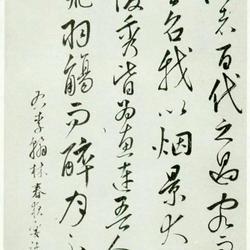 者百代之過客
召我以烟景大
俊秀皆為惠連吾人
飛羽觴而醉月不
李翰林春夜宴